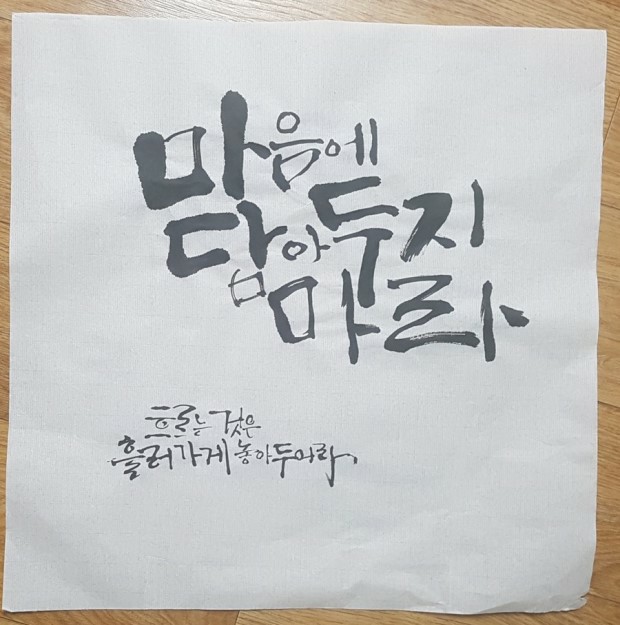 마음에
담아두지
마라
흐르는 것은
흘러가게 놓아두어라